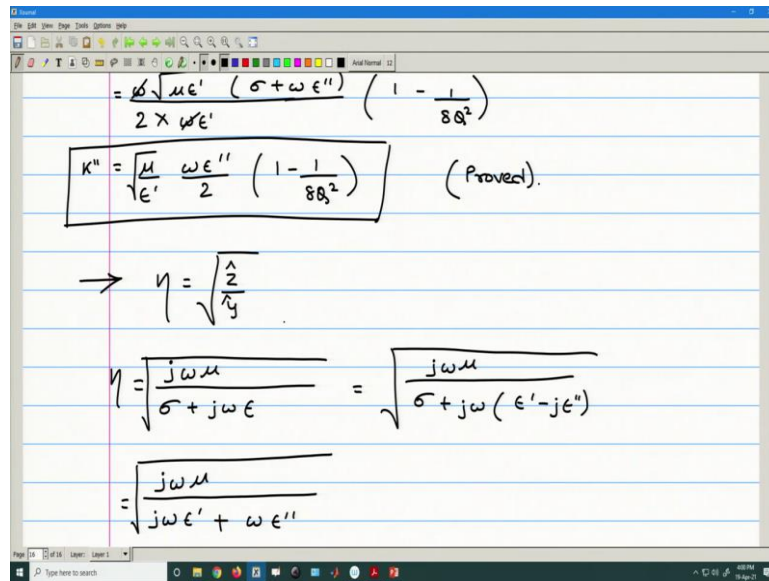 Xournal
File Edit View Page Tools Options Help
Arial Normal 12
= ω̸ √με' (σ + ω ε'') / 2 × ω̸ε' (1 - 1/8Q²)
K'' = √(μ/ε') ωε''/2 (1 - 1/8Q²) (Proved).
→ η = √(ẑ/ŷ)
η = √(jωμ / σ + jωε) = √(jωμ / σ + jω(ε' - jε''))
= √(jωμ / jωε' + ωε'')
Page 16 of 16 Layer: Layer 1
Type here to search
4:00 PM
19-Apr-21